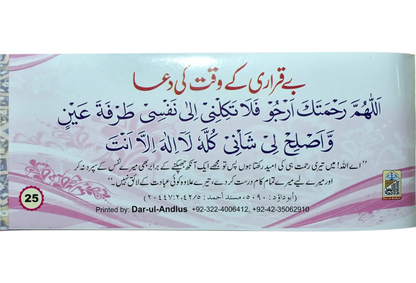 بے قراری کے وقت کی دعا
اَللّٰهُمَّ رَحْمَتَكَ اَرْجُوْ فَلَا تَكِلْنِیْ اِلٰی نَفْسِیْ طَرْفَةَ عَيْنٍ
وَّاَصْلِحْ لِیْ شَاْنِیْ كُلَّهٗ لَا اِلٰهَ اِلَّا اَنْتَ
”اے اللہ! میں تیری رحمت ہی کی امید رکھتا ہوں پس تو مجھے ایک آنکھ جھپکنے کے برابر بھی میرے نفس کے سپرد نہ کر
اور میرے لیے میرے تمام کام درست کر دے، تیرے علاوہ کوئی عبادت کے لائق نہیں۔“
(ابوداؤد: ۵۰۹۰، مسند احمد: ۴۲/۵، ۲۰۴۴۷)
25
Printed by: Dar-ul-Andlus +92-322-4006412, +92-42-35062910